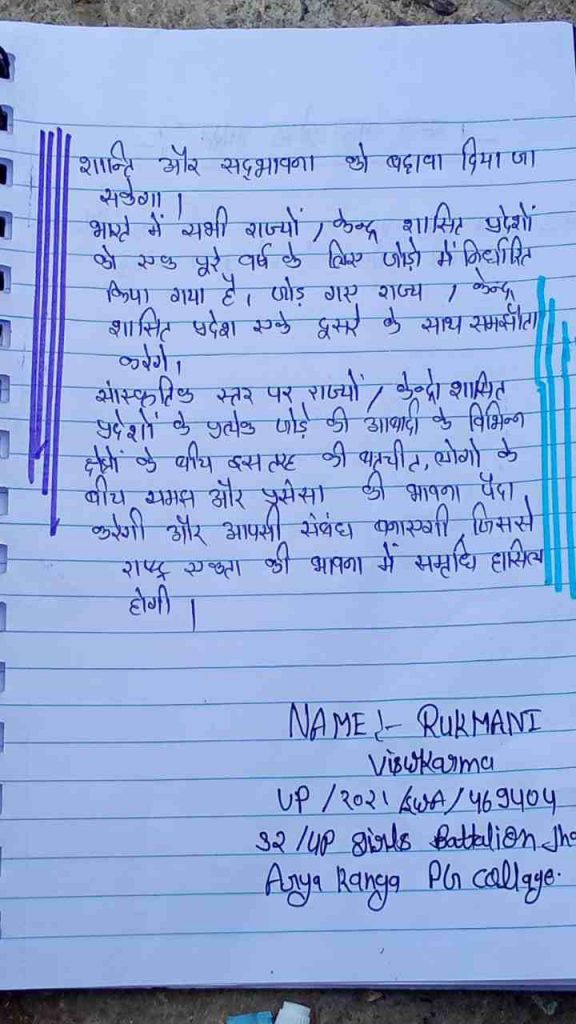 शान्ति और सद्भावना को बढ़ावा दिया जा
सकेगा।
भारत में सभी राज्यों / केन्द्र शासित प्रदेशों
को एक पूरे वर्ष के लिए जोड़ो में निर्धारित
किया गया है। जोड़ गए राज्य / केन्द्र
शासित प्रदेश एक दूसरे के साथ समझौता
करेंगे।
सांस्कृतिक स्तर पर राज्यों / केन्द्रो शासित
प्रदेशों के प्रत्येक जोड़े की आबादी के विभिन्न
क्षेत्रों के बीच इस तरह की बातचीत, लोगो के
बीच समझ और प्रसंसा की भावना पैदा
करेगी और आपसी संबंध बनाएगी जिससे
राष्ट्र एकता की भावना में समृधि हासिल
होगी।
NAME :- RUKMANI
Viswkarma
UP / 2021 /SWA / 469404
32 / UP Girls Battalion Jha
Arya Kanya PG collage.